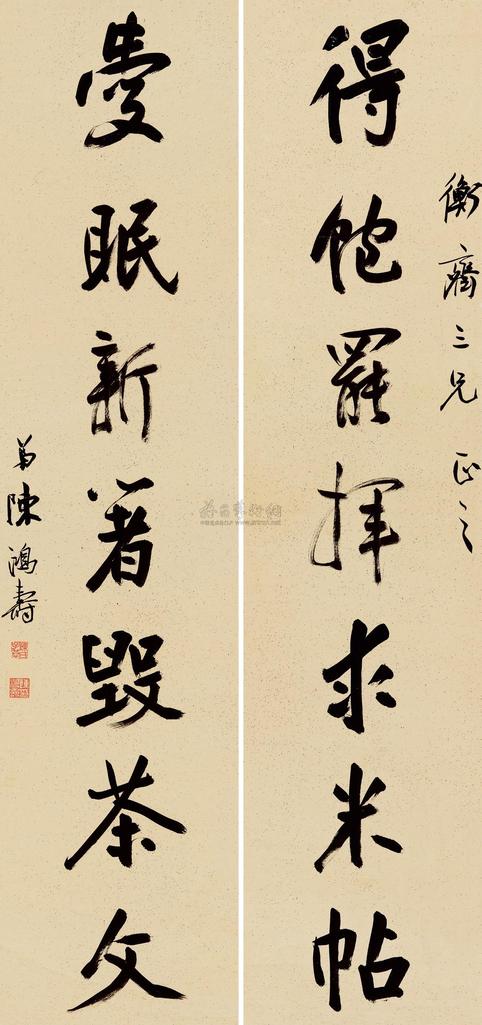 衡齋三兄 正之
得飽罷揮求米帖
愛眠新著毀茶文
弟陳鴻壽